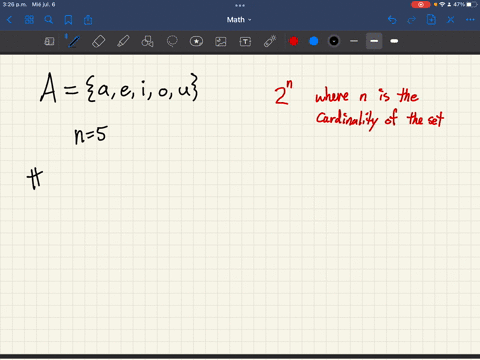 3:26 p.m. Mié jul. 6
47%
Math
A = {a, e, i, o, u}
2ⁿ where n is the
cardinality of the set
n=5
#